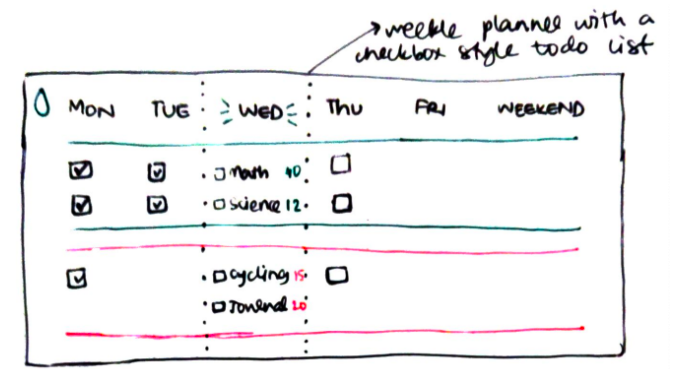 weekle planner with a
checkbox style todo list
MON TUE WED THU FRI WEEKEND
Math 40
Science 12
cycling 15
20